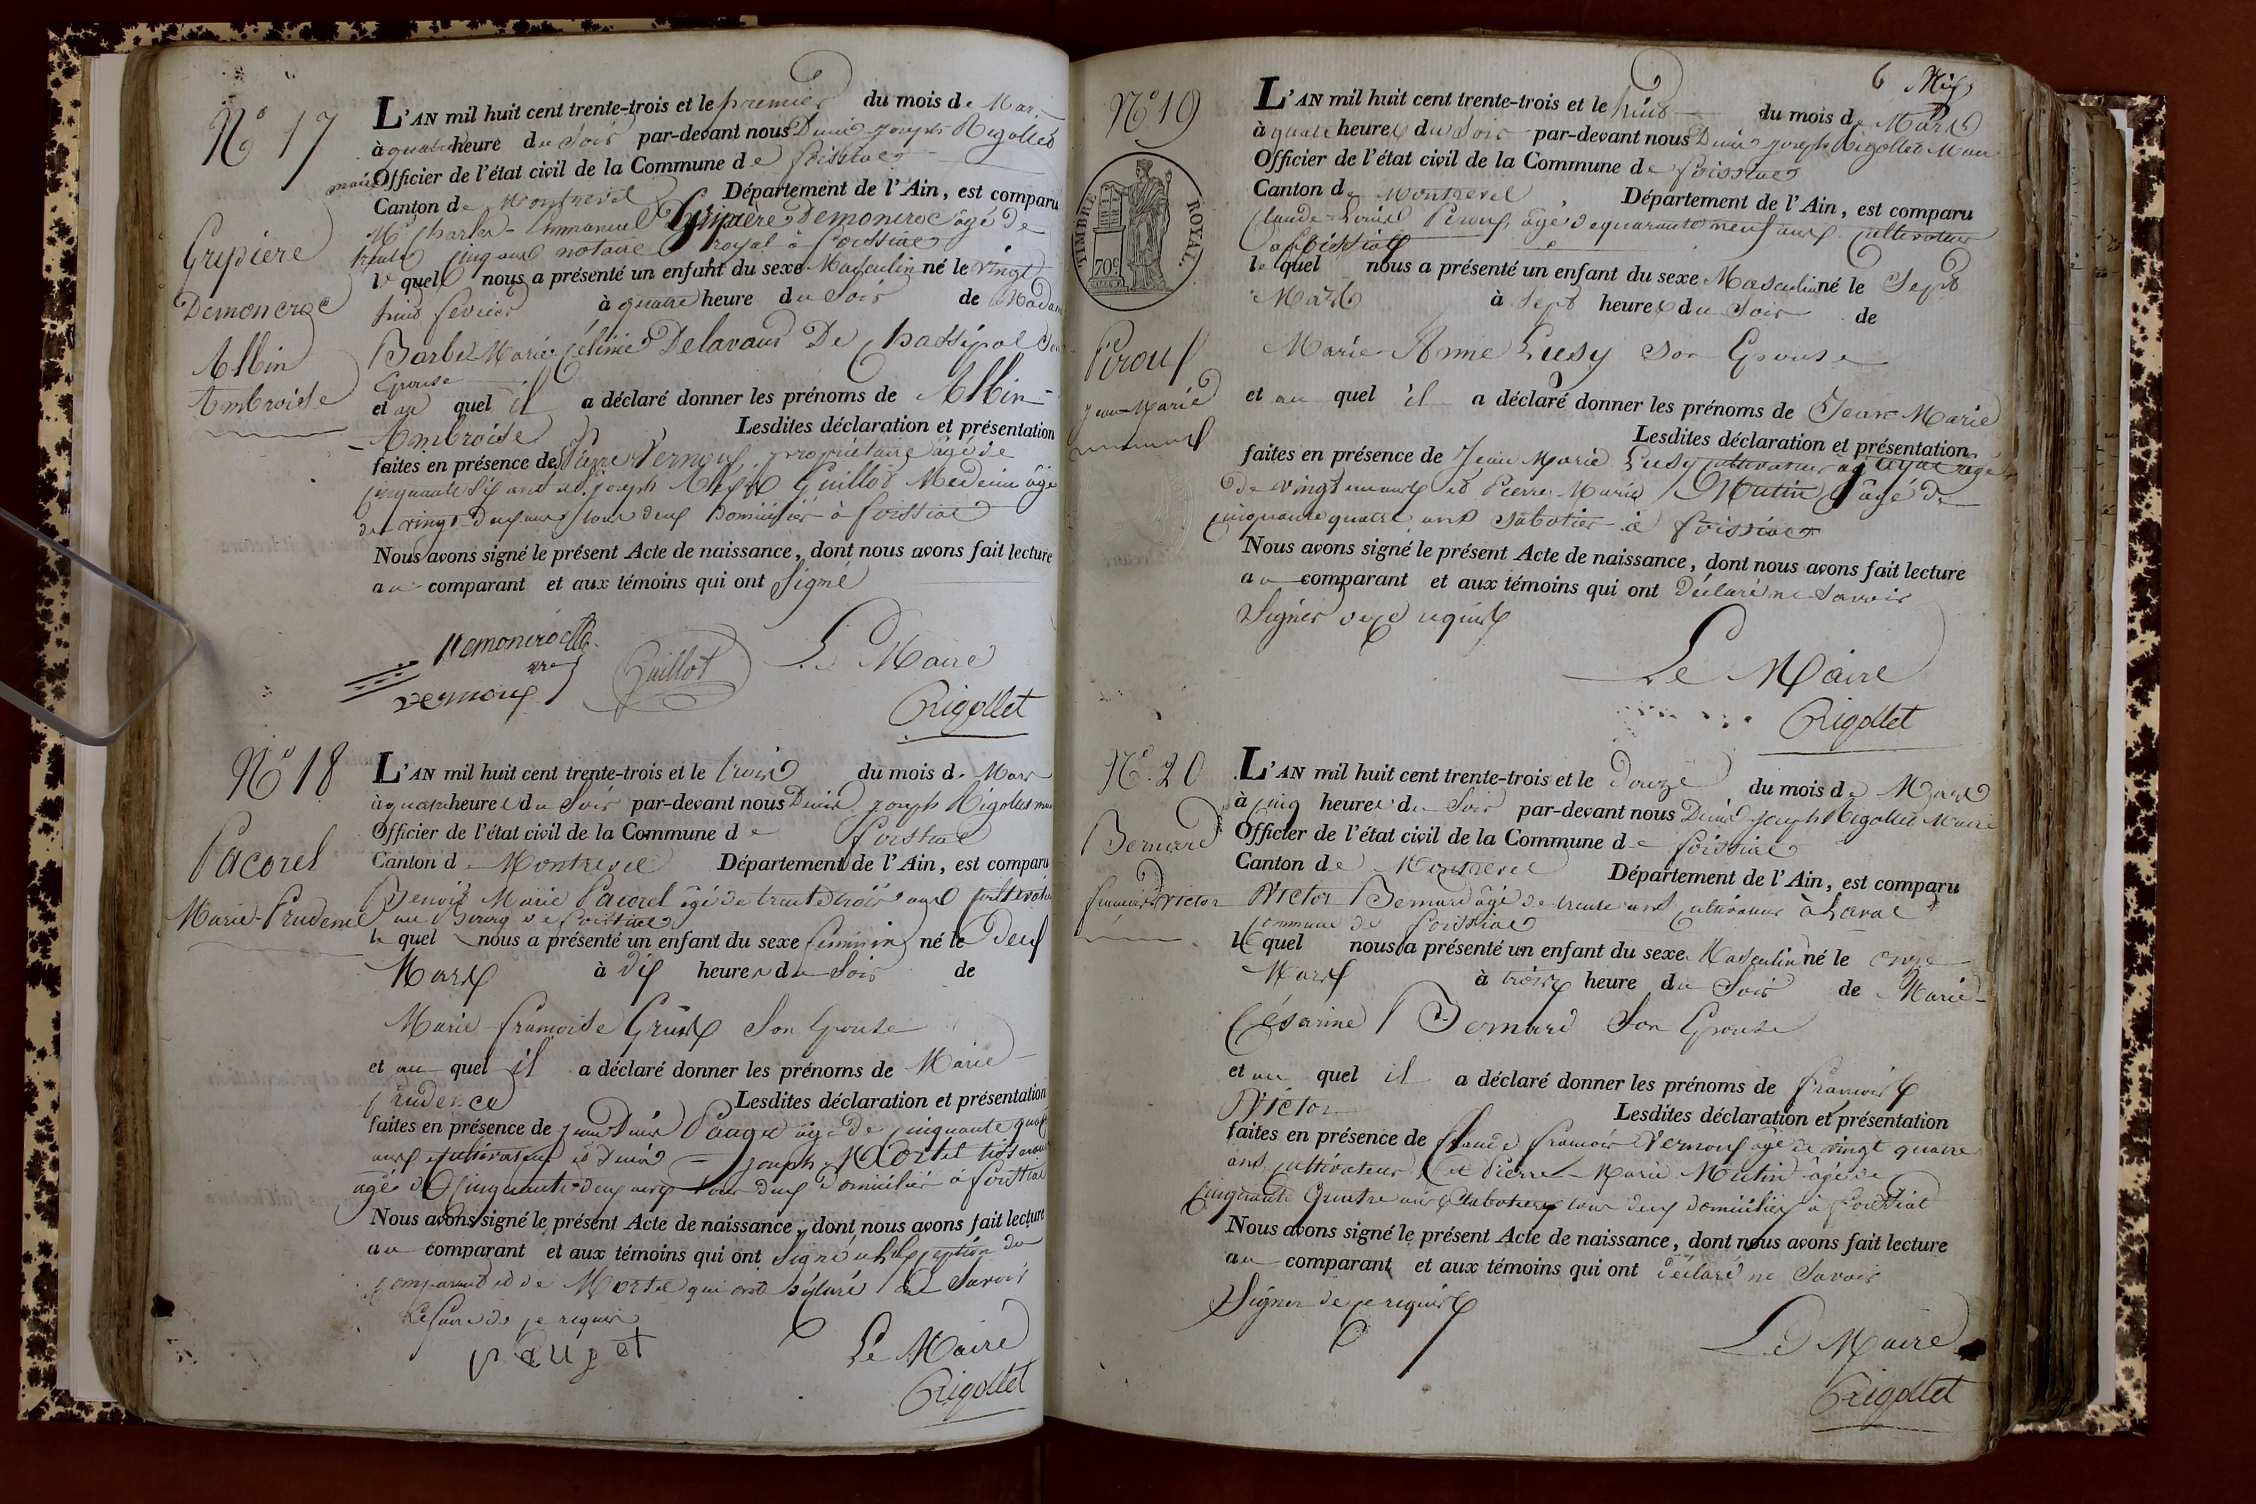 N° 17
Gripiere
Demoncroc
Albin
Ambroise
L'AN mil huit cent trente-trois et le premier du mois de Mars
à quatre heure du Soir par-devant nous Denis Joseph Rigollet
maire Officier de l'état civil de la Commune de foissiat
Canton de Montrevel Département de l'Ain, est comparu
Mr Charles-Emmanuel Gripiere Demoncroc âgé de
trente cinq ans notaire royal à foissiat
lequel nous a présenté un enfant du sexe Masculin né le vingt
huit fevrier à quatre heure du Soir de Madame
Barbe Marie Célinie Delavaud De Chassipol Son
Epouse
et au quel il a déclaré donner les prénoms de Albin-
Ambroise Lesdites déclaration et présentation
faites en présence de Pierre Vernoux propriétaire âgé de
cinquante six ans et joseph Guillot Medecin âgé
de vingt-deux ans tous deux Domiciliés à foissiat
Nous avons signé le présent Acte de naissance, dont nous avons fait lecture
au comparant et aux témoins qui ont Signé
Demoncroc
Guillot Le Maire
vernoux
Rigollet
N° 18
Pacorel
Marie-Prudence
L'AN mil huit cent trente-trois et le trois du mois de Mars
à quatre heures du Soir par-devant nous Denis joseph Rigollet maire
Officier de l'état civil de la Commune de foissiat
Canton de Montrevel Département de l'Ain, est comparu
Benoit Marie Pacorel âgé de trente trois ans cultivateur
au Bourg de foissiat
le quel nous a présenté un enfant du sexe feminin né le Deux
Mars à dix heures du Soir de
Marie françoise Son Epouse
et au quel il a déclaré donner les prénoms de Marie-
Prudence Lesdites déclaration et présentation
faites en présence de jean Denis Pauget âgé de cinquante quatre
ans cultivateur et Denis - joseph Mortel tisserand
âgé de Cinquante deux ans tous deux domiciliés à foissiat
Nous avons signé le présent Acte de naissance, dont nous avons fait lecture
au comparant et aux témoins qui ont Signé à l'exception du
comparant et de Mortel qui ont déclaré ne Savoir
le faire de ce requis
pauget Le Maire
Rigollet
6 Mis
N° 19
TIMBRE ROYAL.
70c
Piroux
Jean-Marie
L'AN mil huit cent trente-trois et le huit du mois de Mars
à quatre heures du Soir par-devant nous Denis joseph Rigollet Maire
Officier de l'état civil de la Commune de foissiat
Canton de Montrevel Département de l'Ain, est comparu
Claude-Louis Piroux, âgé de quarante neuf ans cultivateur
à foissiat
le quel nous a présenté un enfant du sexe Masculin né le Sept
Mars à Sept heures du Soir de
Marie-Anne Lusy Son Epouse
et au quel il a déclaré donner les prénoms de Jean-Marie
Lesdites déclaration et présentation
faites en présence de Jean Marie Lusy cultivateur âgé
de vingt ans et Pierre Marie Mutin âgé de
cinquante quatre ans Sabotier à foissiat
Nous avons signé le présent Acte de naissance, dont nous avons fait lecture
au comparant et aux témoins qui ont Déclaré ne Savoir
Signer de ce requis
Le Maire
Rigollet
N° 20
Bernard
francois Victor
L'AN mil huit cent trente-trois et le douze du mois de Mars
à cinq heures du Soir par-devant nous Denis joseph Rigollet Maire
Officier de l'état civil de la Commune de foissiat
Canton de Montrevel Département de l'Ain, est comparu
Victor Bernard âgé de trente ans cultivateur
commune de foissiat
le quel nous a présenté un enfant du sexe Masculin né le onze
Mars à trois heure du Soir de Marie-
Césarine Bernard Son Epouse
et au quel il a déclaré donner les prénoms de francois
Victor Lesdites déclaration et présentation
faites en présence de Claude francois Vernoux âgé de vingt quatre
ans cultivateur et Pierre-Marie Mutin âgé de
Cinquante Quatre ans Sabotier tous deux domiciliés à foissiat
Nous avons signé le présent Acte de naissance, dont nous avons fait lecture
au comparant et aux témoins qui ont déclaré ne Savoir
Signer de ce requis
Le Maire
Rigollet